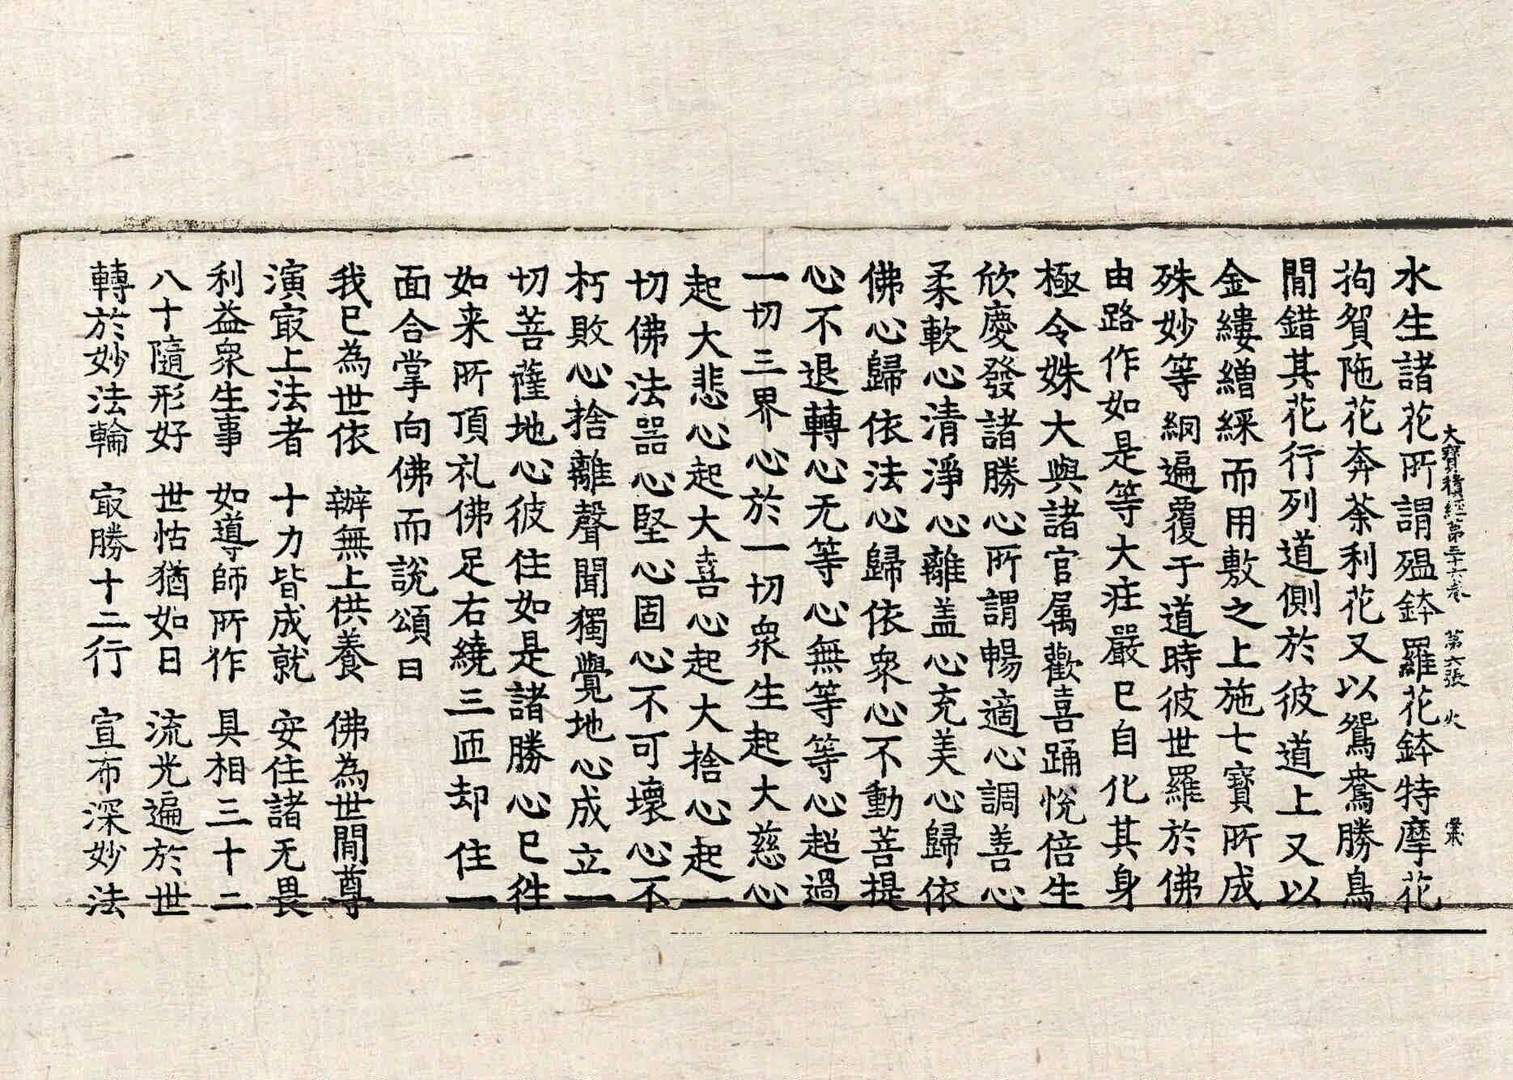 大寶積經第三十六卷　第六張　火
水生諸花所謂殟鉢羅花鉢特摩花
拘貿陁花奔荼利花又以鴛鴦勝鳥
閒錯其花行列道側於彼道上又以
金縷繒綵而用敷之上施七寶所成
殊妙等網遍覆于道時彼世羅於佛
由路作如是等大莊嚴已自化其身
極令姝大與諸官属歡喜踊悅倍生
欣慶發諸勝心所謂暢適心調善心
柔軟心清淨心離盖心充美心歸依
佛心歸依法心歸依衆心不動菩提
心不退轉心无等心無等等心超過
一切三界心於一切衆生起大慈心
起大悲心起大喜心起大捨心起一
切佛法器心堅心固心不可壞心不
朽敗心捨離聲聞獨覺地心成立一
切菩薩地心彼住如是諸勝心已徃
如来所頂礼佛足右繞三匝却住一
面合掌向佛而說頌曰
我已為世依　辦無上供養　佛為世閒尊
演㝡上法者　十力皆成就　安住諸无畏
利益衆生事　如導師所作　具相三十二
八十隨形好　世怙猶如日　流光遍於世
轉於妙法輪　㝡勝十二行　宣布深妙法